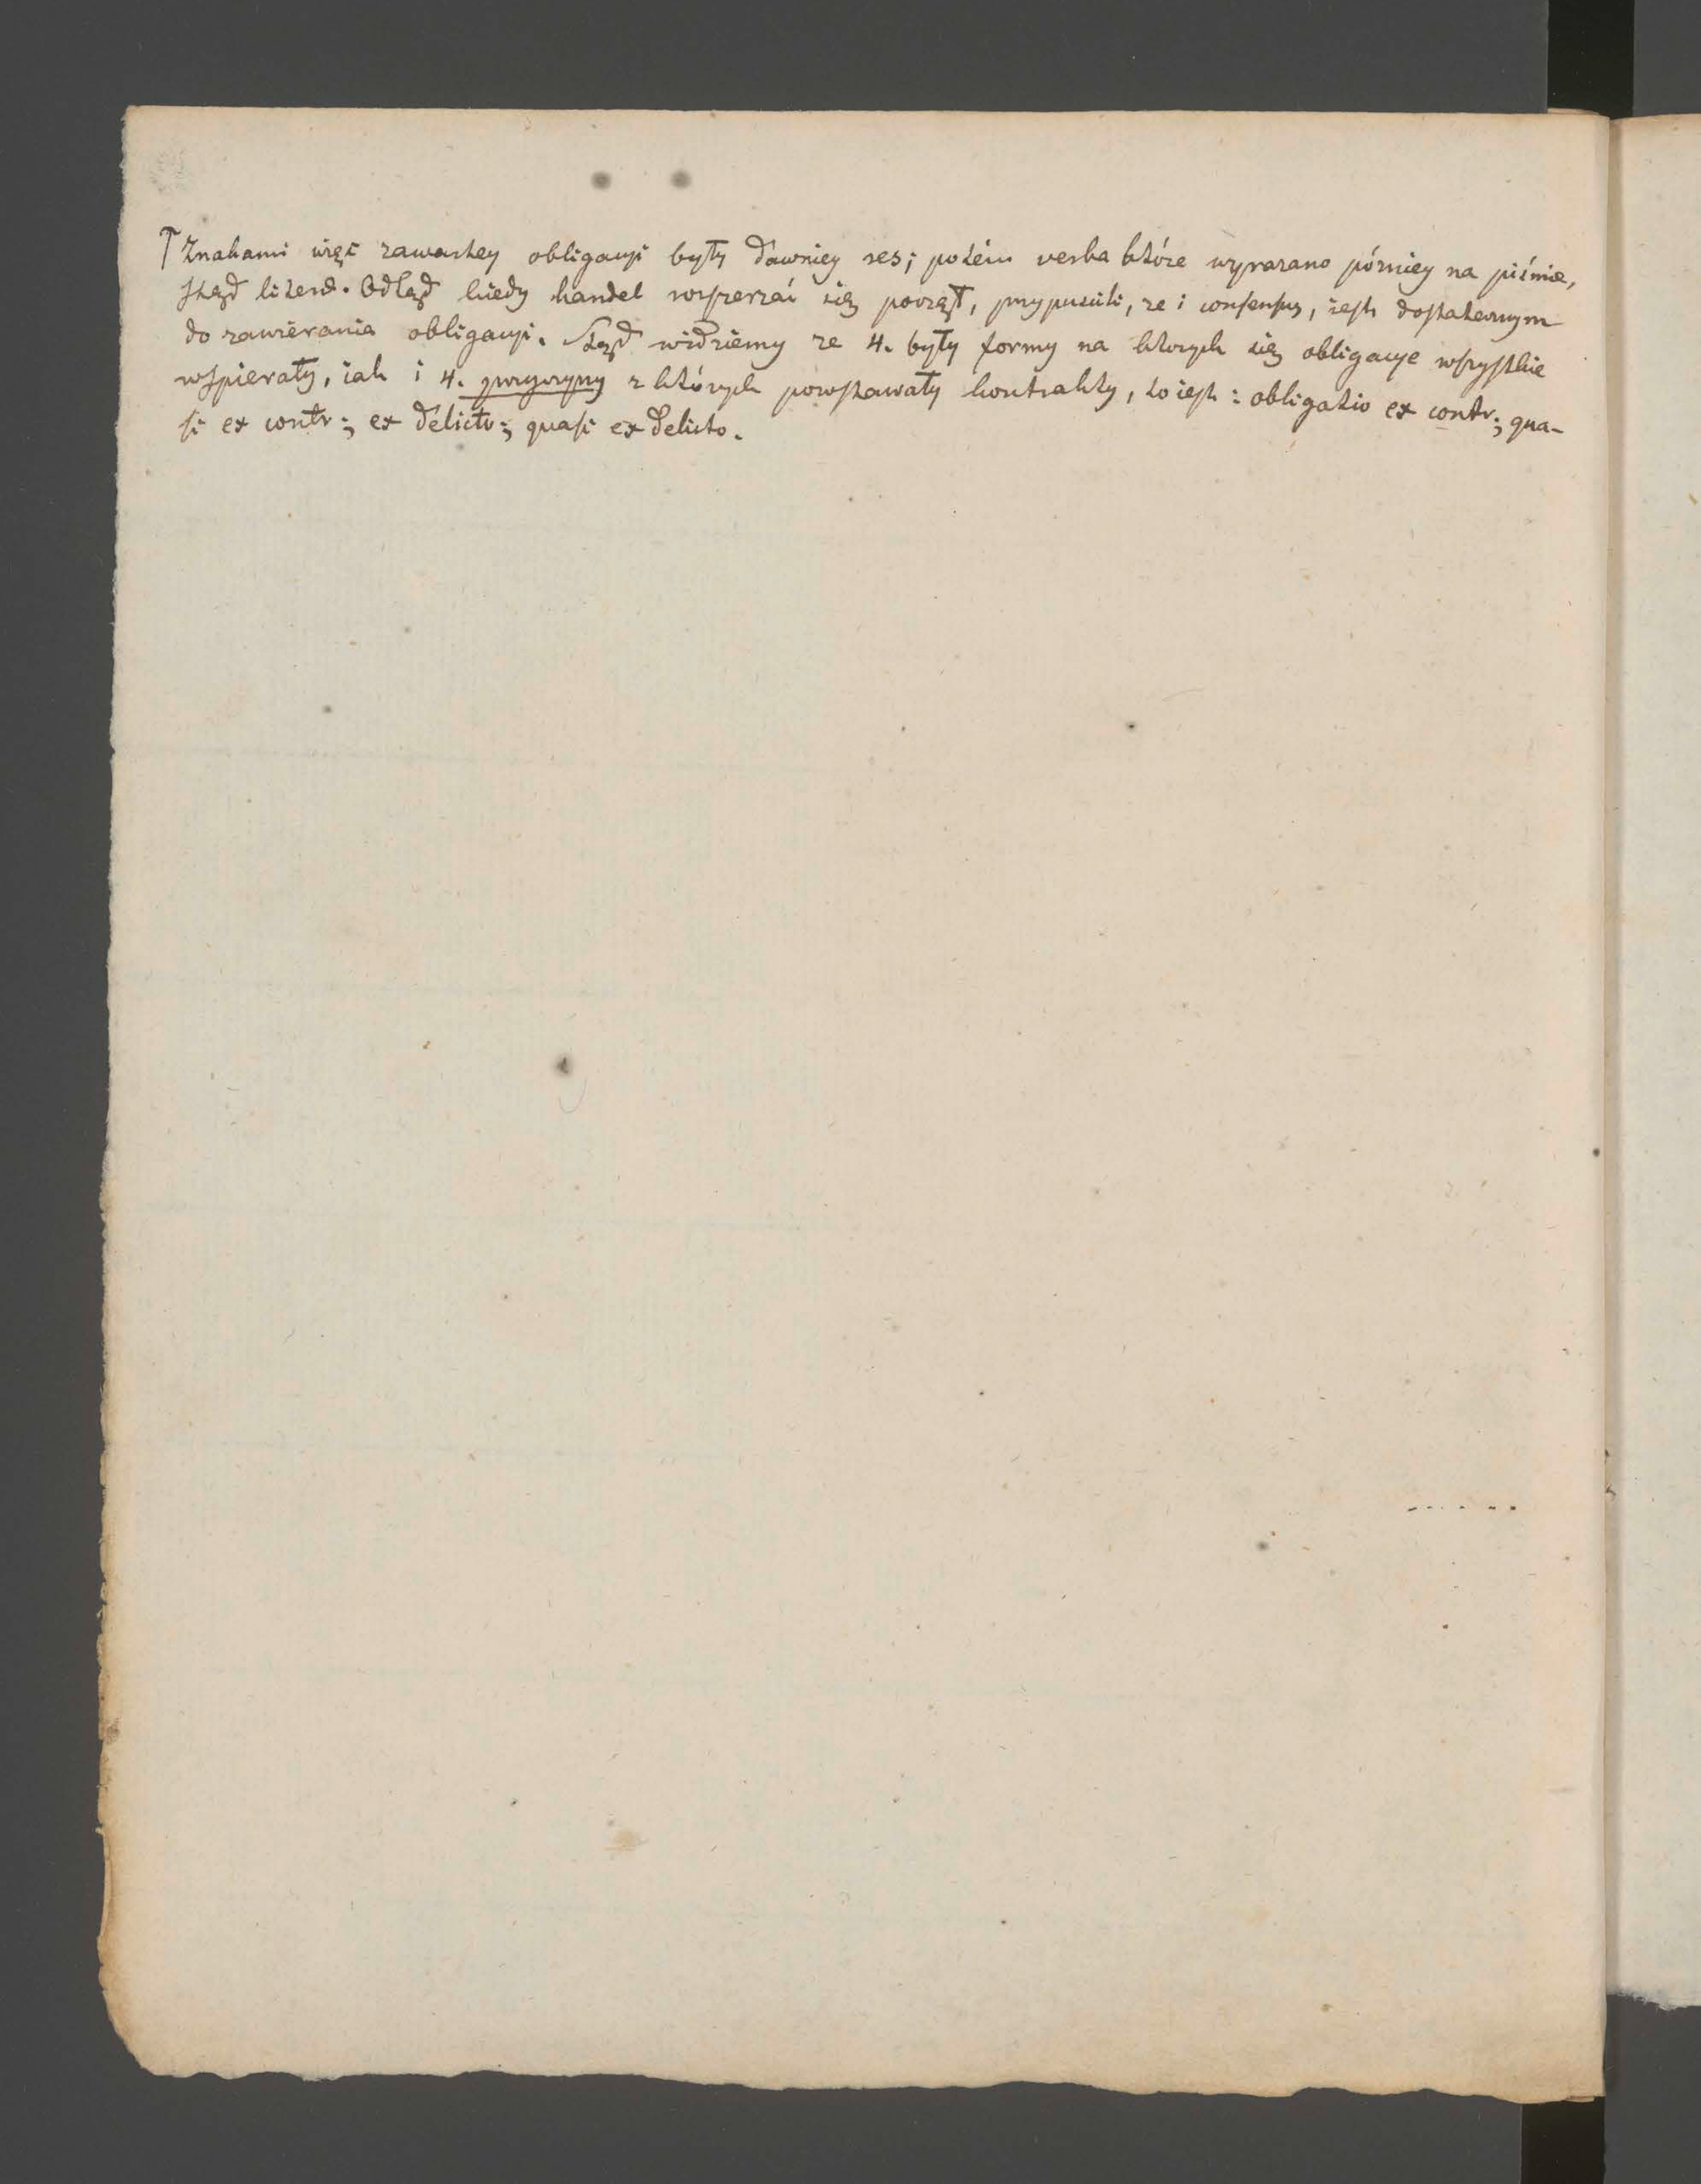 † Znakami więc zawartey obligacyi były dawniey res; potém verba które wyrazano pózniey na piśmie,
ztąd litera. Odtąd kiedy handel rozszerzać się począł, przypuscili, ze i consensus, iest dostatecznym
do zawierania obligacyi. Ztąd widziemy ze 4. były formy na ktorych się obligacye wszystkie
wspierały, iak i 4. przyczyny z których powstawały kontrakty, to iest: obligatio ex contr.; qua-
si ex contr.; ex delicto; quasi ex delicto.